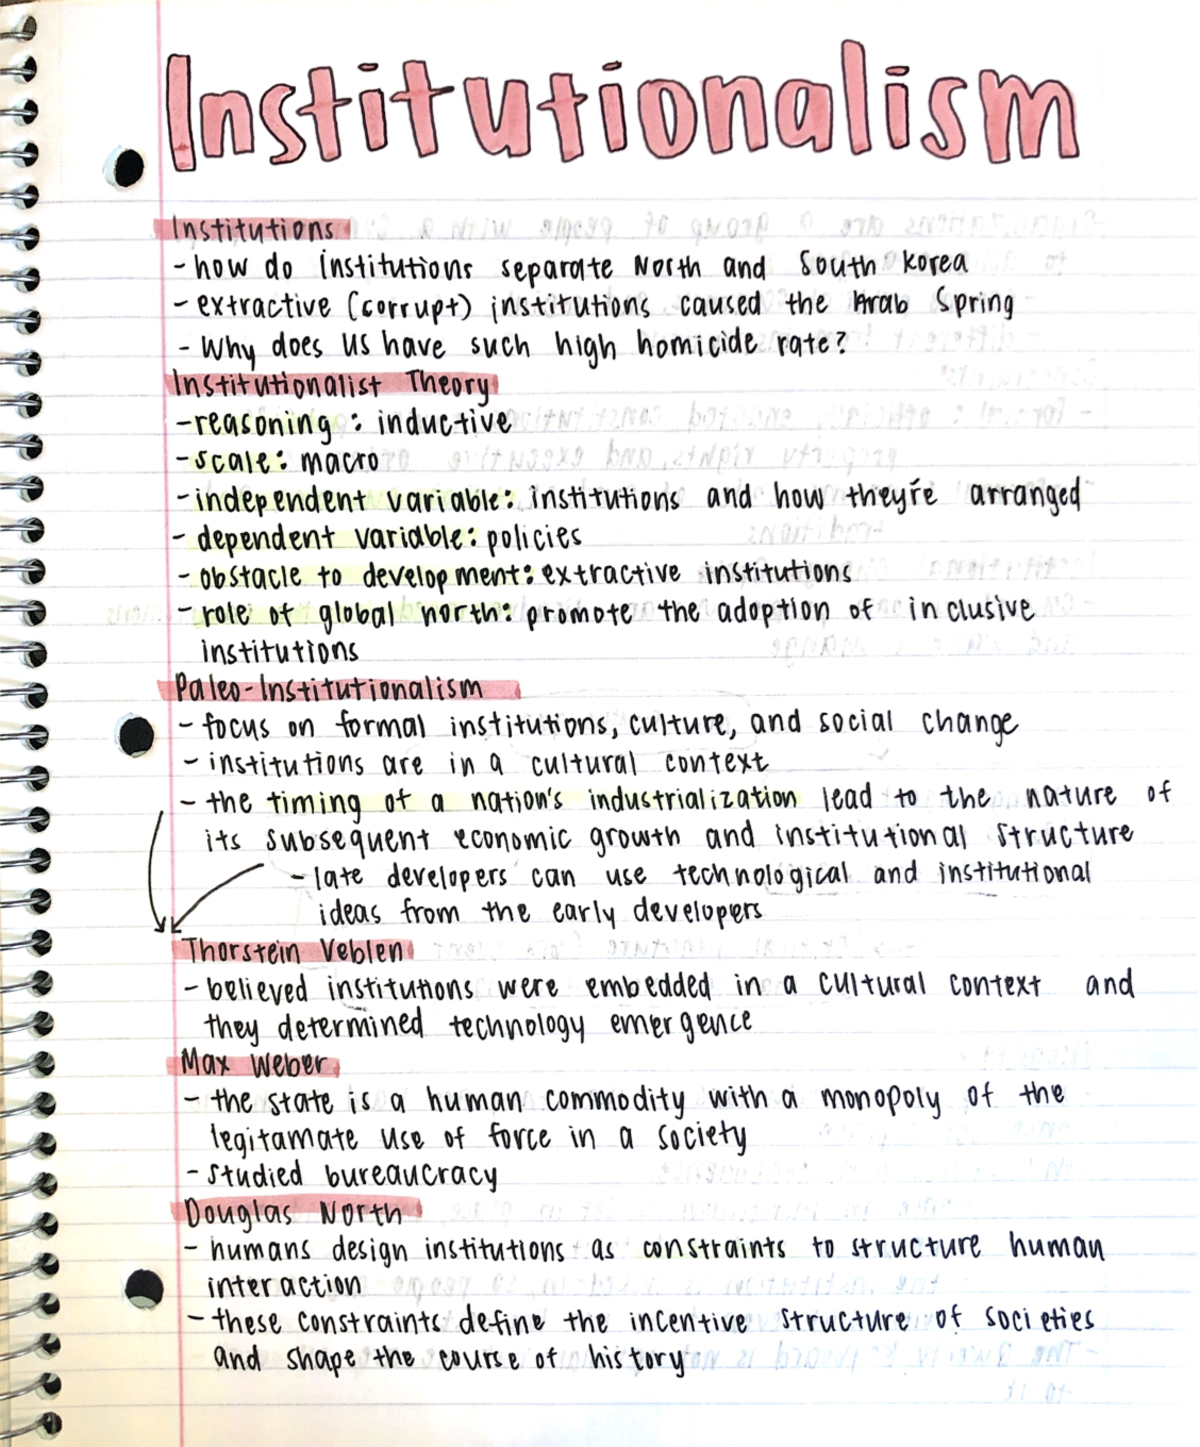 Institutionalism
Institutions
- how do institutions separate North and South Korea
- extractive (corrupt) institutions caused the Arab Spring
- Why does US have such high homicide rate?
Institutionalist Theory
- reasoning: inductive
- scale: macro
- independent variable: institutions and how they're arranged
- dependent variable: policies
- obstacle to development: extractive institutions
- role of global north: promote the adoption of inclusive
institutions
Paleo-Institutionalism
- focus on formal institutions, culture, and social change
- institutions are in a cultural context
- the timing of a nation's industrialization lead to the nature of
its subsequent economic growth and institutional structure
- late developers can use technological and institutional
ideas from the early developers
Thorstein Veblen
- believed institutions were embedded in a cultural context and
they determined technology emergence
Max Weber
- the state is a human commodity with a monopoly of the
legitamate use of force in a society
- studied bureaucracy
Douglas North
- humans design institutions as constraints to structure human
interaction
- these constraints define the incentive structure of societies
and shape the course of history